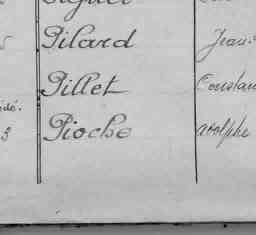 Pilard Jean-
Pillet Constan
édé.
3 Pioche adolphe